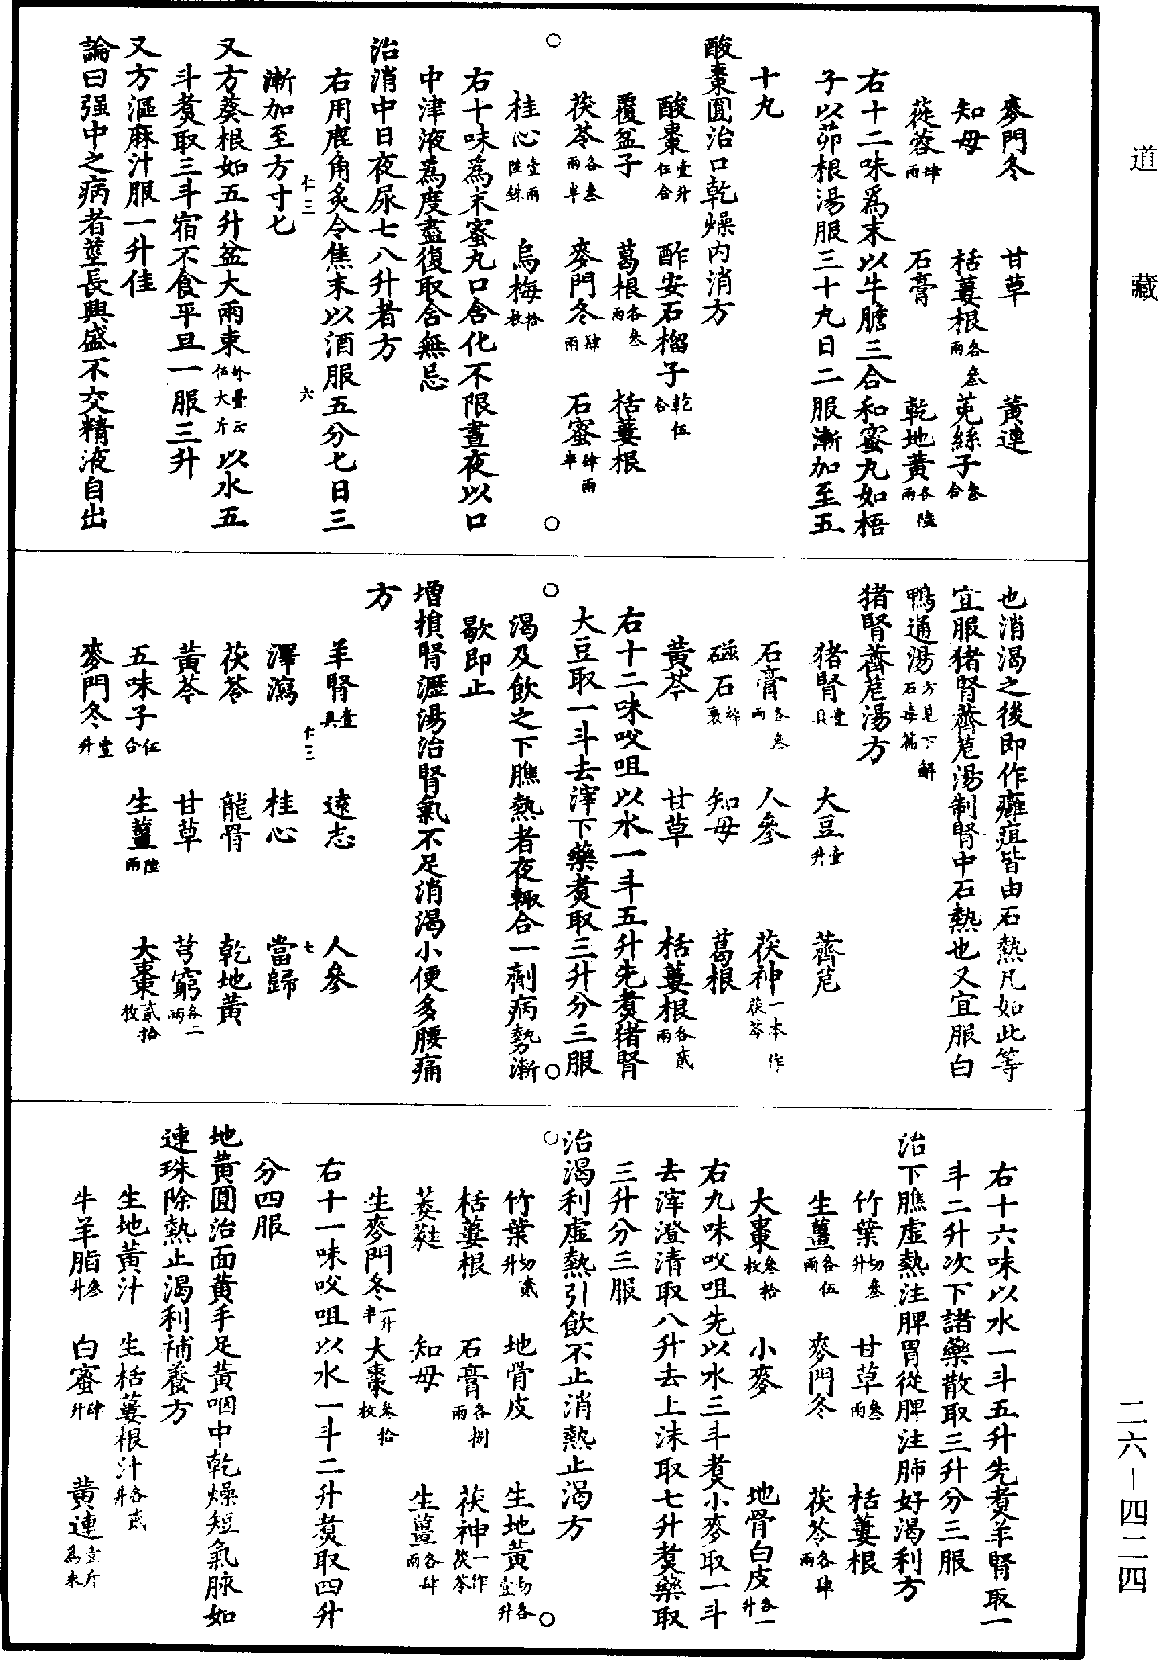 道藏
麥門冬 甘草 黃連
知母 栝蔞根各叁兩 菟絲子叁合
蓯蓉肆兩 石膏 乾地黃各陸兩
右十二味爲末以牛膽三合和蜜丸如梧
子以茆根湯服三十丸日二服漸加至五
十丸
酸棗圓治口乾燥內消方
酸棗壹升伍合 酢安石榴子乾伍合
覆盆子 葛根各叁兩 栝蔞根
茯苓各叁兩半 麥門冬肆兩 石蜜肆兩半
桂心壹兩陸銖 烏梅拾枚
右十味爲末蜜丸口含化不限晝夜以口
中津液爲度盡復取含無忌
治消中日夜尿七八升者方
右用鹿角炙令焦末以酒服五分七日三
漸加至方寸匕
又方葵根如五升盆大兩束外臺云伍大斤以水五
斗煑取三斗宿不食平旦一服三升
又方漚麻汁服一升佳
論曰强中之病者莖長興盛不交精液自出
也消渴之後即作癰疽皆由石熱凡如此等
宜服猪腎薺苨湯制腎中石熱也又宜服白
鴨通湯方見下解石毒篇
猪腎薺苨湯方
猪腎壹具 大豆壹升 薺苨
石膏各叁兩 人參 茯神一本作茯苓
磁石綿裹 知母 葛根
黃芩 甘草 栝蔞根各貳兩
右十二味㕮咀以水一斗五升先煑猪腎
大豆取一斗去滓下藥煑取三升分三服
渴及飲之下膲熱者夜輒合一劑病勢漸
歇即止
增損腎瀝湯治腎氣不足消渴小便多腰痛
方
羊腎壹具 遠志 人參
澤瀉 桂心 當歸
茯苓 龍骨 乾地黃
黃芩 甘草 芎窮各二兩
五味子伍合 生薑陸兩 大棗貳拾枚
麥門冬壹升
右十六味以水一斗五升先煑羊腎取一
斗二升次下諸藥散取三升分三服
治下膲虛熱注脾胃從脾注肺好渴利方
竹葉切叁升 甘草叁兩 栝蔞根
生薑各伍兩 麥門冬 茯苓各肆兩
大棗叁拾枚 小麥 地骨白皮各一升
右九味㕮咀先以水三斗煑小麥取一斗
去滓澄清取八升去上沫取七升煑藥取
三升分三服
治渴利虛熱引飲不止消熱止渴方
竹葉切貳升 地骨皮 生地黃切各壹升
栝蔞根 石膏各捌兩 茯神一作茯苓
萎蕤 知母 生薑各肆兩
生麥門冬一升半 大棗叁拾枚
右十一味㕮咀以水一斗二升煑取四升
分四服
地黃圓治面黃手足黃咽中乾燥短氣脉如
連珠除熱止渴利補養方
生地黃汁 生栝蔞根汁各貳升
牛羊脂叁升 白蜜肆升 黃連壹斤爲末
二六-四二四